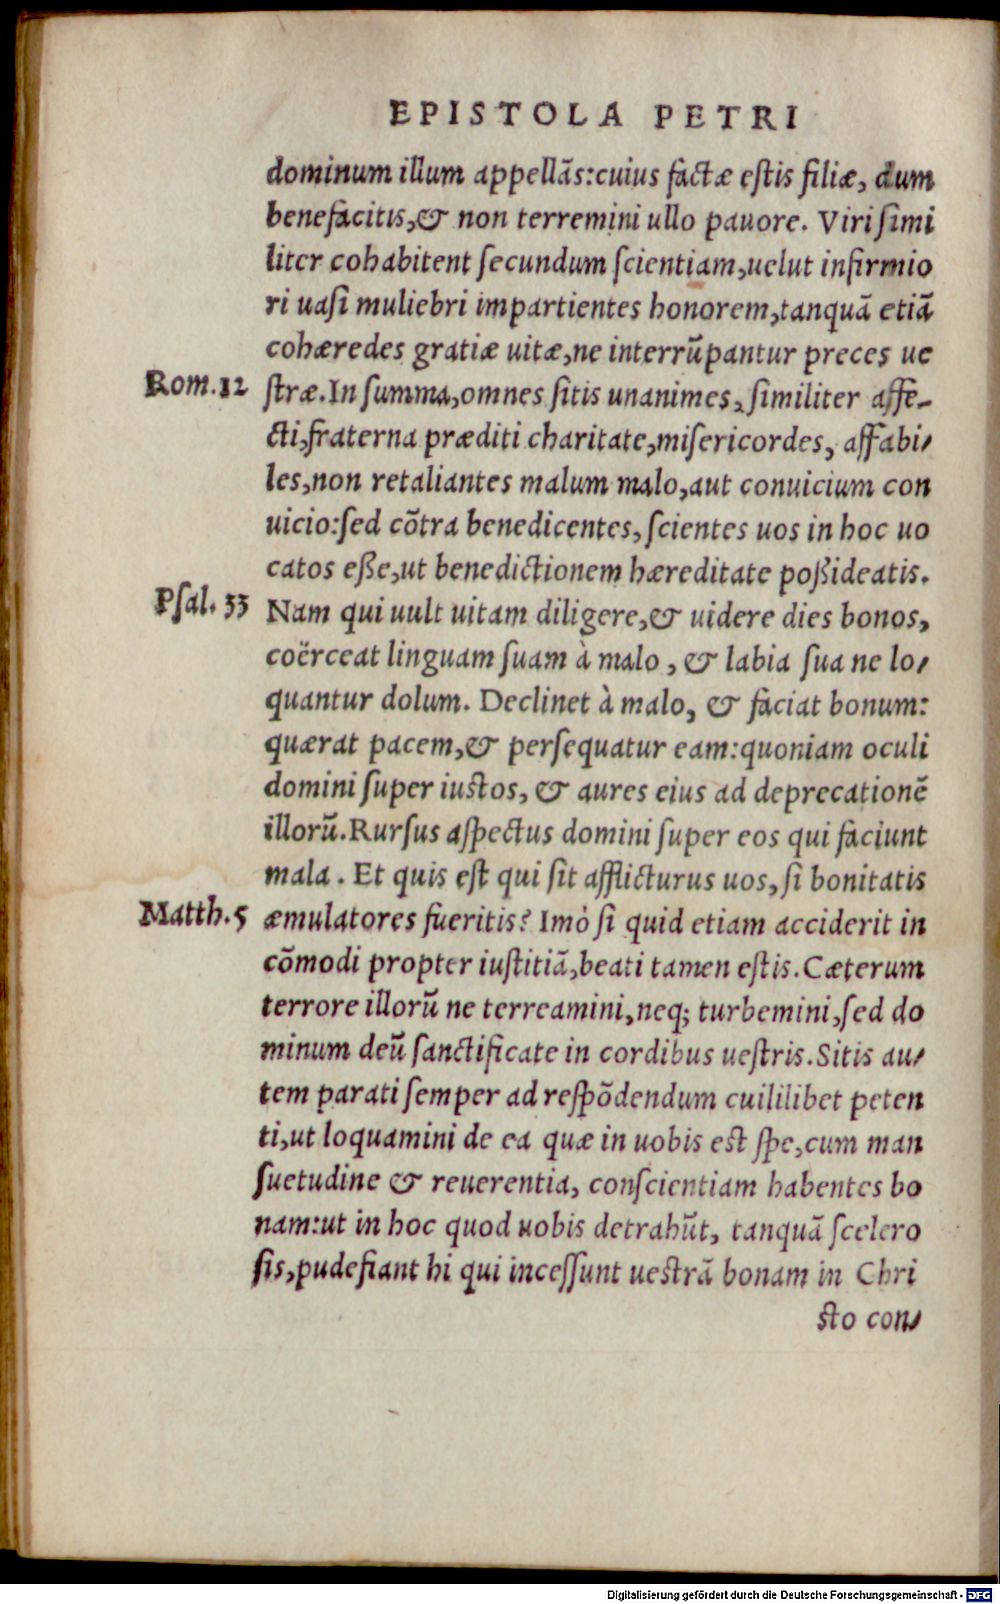 EPISTOLA PETRI
dominum illum appellãs:cuius factæ estis filiæ, dum
benefacitis,& non terremini ullo pauore. Viri simi
liter cohabitent secundum scientiam,uelut infirmio
ri uasi muliebri impartientes honorem,tanquã etiã
cohæredes gratiæ uitæ,ne interrũpantur preces ue
Rom.12 stræ.In summa,omnes sitis unanimes, similiter affe-
cti,fraterna præditi charitate,misericordes, affabi-
les,non retaliantes malum malo,aut conuicium con
uicio:sed cõtra benedicentes, scientes uos in hoc uo
catos eße,ut benedictionem hæreditate poßideatis.
Psal. 33 Nam qui uult uitam diligere,& uidere dies bonos,
coërceat linguam suam à malo , & labia sua ne lo-
quantur dolum. Declinet à malo, & faciat bonum:
quærat pacem,& persequatur eam:quoniam oculi
domini super iustos, & aures eius ad deprecationẽ
illorũ.Rursus aspectus domini super eos qui faciunt
mala . Et quis est qui sit afflicturus uos, si bonitatis
Matth.5 æmulatores fueritis? Imò si quid etiam acciderit in
cõmodi propter iustitiã,beati tamen estis.Cæterum
terrore illorũ ne terreamini,neq; turbemini,sed do
minum deũ sanctificate in cordibus uestris.Sitis au-
tem parati semper ad respõdendum cuililibet peten
ti,ut loquamini de ea quæ in uobis est spe,cum man
suetudine & reuerentia, conscientiam habentes bo
nam:ut in hoc quod uobis detrahũt, tanquã scelero
sis,pudefiant hi qui incessunt uestrã bonam in Chri
sto con-
Digitalisierung gefördert durch die Deutsche Forschungsgemeinschaft - DFG